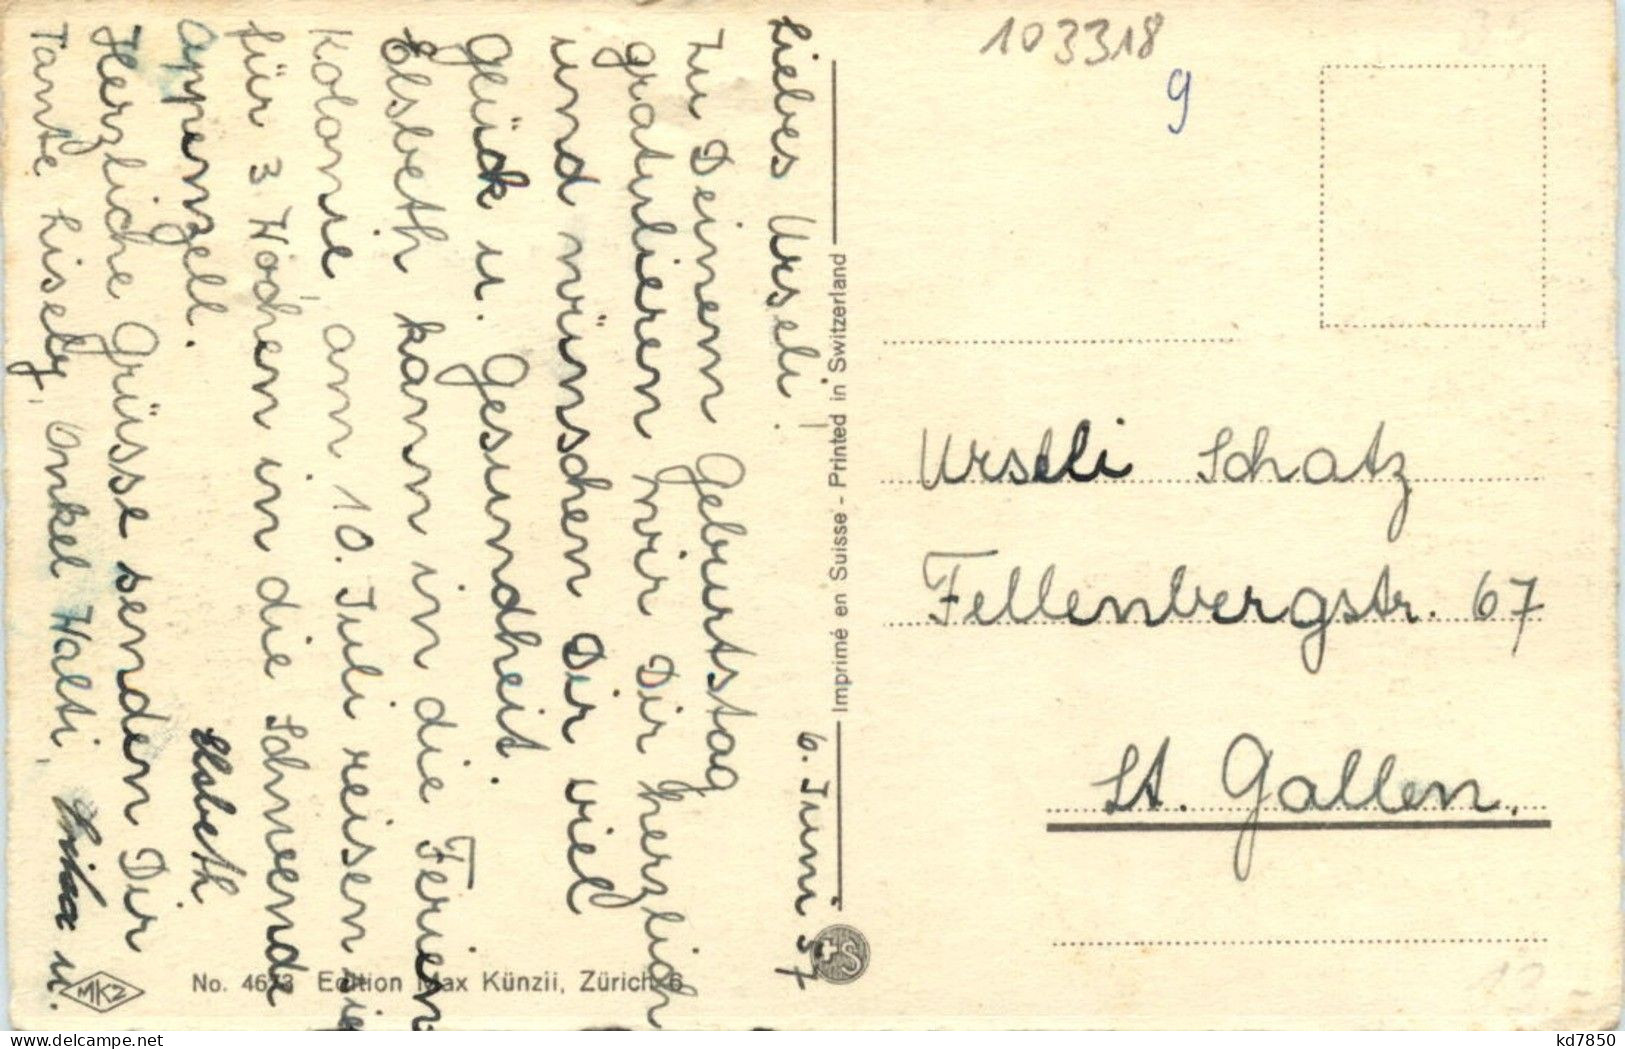 6. Juni 57
Liebes Urseli!
Zu Deinem Geburtstag
gratulieren wir Dir herzlich
und wünschen Dir viel
Glück u. Gesundheit.
Elsbeth kann in die Ferien
Kolonie, am 10. Juli reisen sie
für 3 Wochen in die Schwende
Appenzell.
Herzliche Grüsse senden Dir
Tante Lisely, Onkel Walti, u.
Elsbeth
No. 4673 Edition Max Künzli, Zürich 6
MKZ
Imprimé en Suisse - Printed in Switzerland
S
103318
9
Urseli Schatz
Fellenbergstr. 67
St. Gallen.
12.-
kd7850